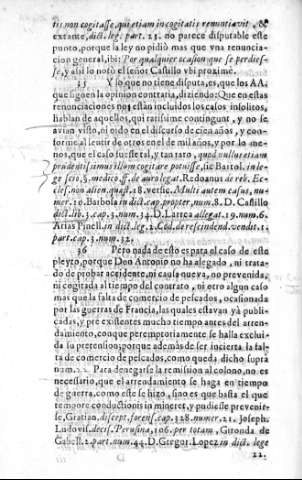 tis non cogitasse, qui etiam incogitatis renuntiavit, &
extante, dict. leg. part. 23. no parece disputable este
punto, porque la ley no pidiò mas que vna renuncia-
cion general, ibi: Por qualquier ocasion que se perdies-
se, y assi lo notò el señor Castillo vbi proximè.
35 Y lo que no tiene disputa, es, que los AA.
que siguen la opinion contraria, diziendo: Que en estas
renunciaciones no estàn incluìdos los casos insolitos,
hablan de aquellos, qui rarissime contingunt, y no se
avian visto, ni oido en el discurso de cien años, y con-
forme al sentir de otros en el de mil años, y por lo me-
nos, que el caso fuesse tal, y tan raro, quod vullus etiam
prudentissimus illum cogitare potuisse, sic Bartol. in le-
ge serò, §. medico, ff. de auro legat. Redoanus de reb. Ec-
cles. non alien. quæst. 18. versic. Multi autem casus, nu-
mer. 10. Barbosa in dict. cap. propter, num. 8. D. Castillo
dict. lib. 3. cap. 3. num. 34. D. Larrea allegat. 19. num. 6.
Arias Pinell. in dict. leg. 2. Cod. de rescindend. vendit. 1.
part. cap. 3. num. 32.
36 Pero nada de esto es para el caso de este
pleyto, porque Don Antonio no ha alegado, ni trata-
do de probar accidente, ni causa nueva, no prevenida,
ni cogitada al tiempo del contrato, ni otro algun caso
mas que la falta de comercio de pescados, ocasionada
por las guerras de Francia, las quales estavan yà publi-
cadas, y pre existentes mucho tiempo antes del arren-
damiento, con que peremptoriamente se halla exclui-
da su pretension; porque ademàs de ser incierta la fal-
ta de comercio de pescados, como queda dicho suprà
num. 22. Para denegarse la remission al colono, no es
necesario, que el arrendamiento se haga en tiempo
de guerra, como este se hizo, sino es que basta el que
tempore conductionis in mineret, y pudiesse prevenir-
se, Gratian. discept. forens. cap. 328. numer. 21. Joseph.
Ludovis. decis. Perusina, 106. per totam, Gironda de
Gabell. 2. part. num. 44. D. Gregor. Lopez in dict. lege
22.